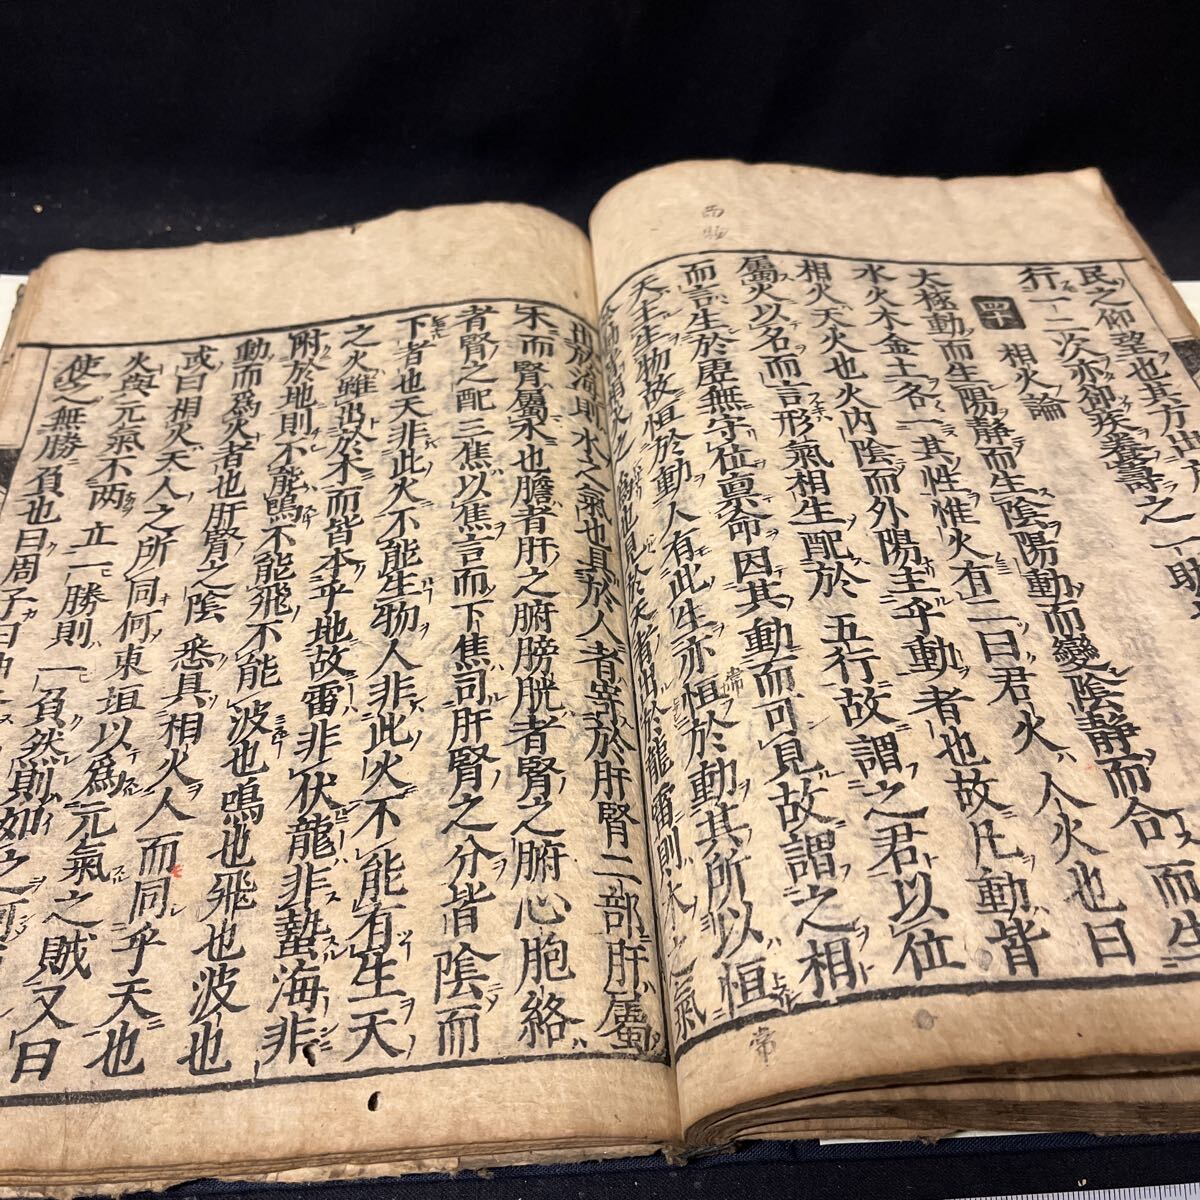 民之仰望也其方出
行一二次亦御疾養壽之一助
四十 相火論
太極動而生陽靜而生陰陽動而變陰靜而合而生
水火木金土各一其性惟火有二曰君火人火也曰
相火天火也火內陰而外陽主乎動者也故凡動皆
屬火以名而言形氣相生配於五行故謂之君以位
而言生於虛無守位稟命因其動而可見故謂之相
天主生物故恒於動人有此生亦恒於動其所以恒
於動皆相火之 也見於天者出於龍雷則木之氣
出於海則水之氣也具於人者寄於肝腎二部肝屬
木而腎屬水也膽者肝之腑膀胱者腎之腑心胞絡
者腎之配三焦以焦言而下焦司肝腎之分皆陰而
下者也天非此火不能生物人非此火不能有生天
之火雖出於木而皆本乎地故雷非伏龍非蟄海非
附於地則不能鳴不能飛不能波也鳴也飛也波也
動而爲火者也肝腎之陰悉具相火人而同乎天也
或曰相火天人之所同何東垣以爲元氣之賊又曰
火與元氣不两立一勝則一負然則如之何
使之無勝負也曰周子曰
西物
常
常